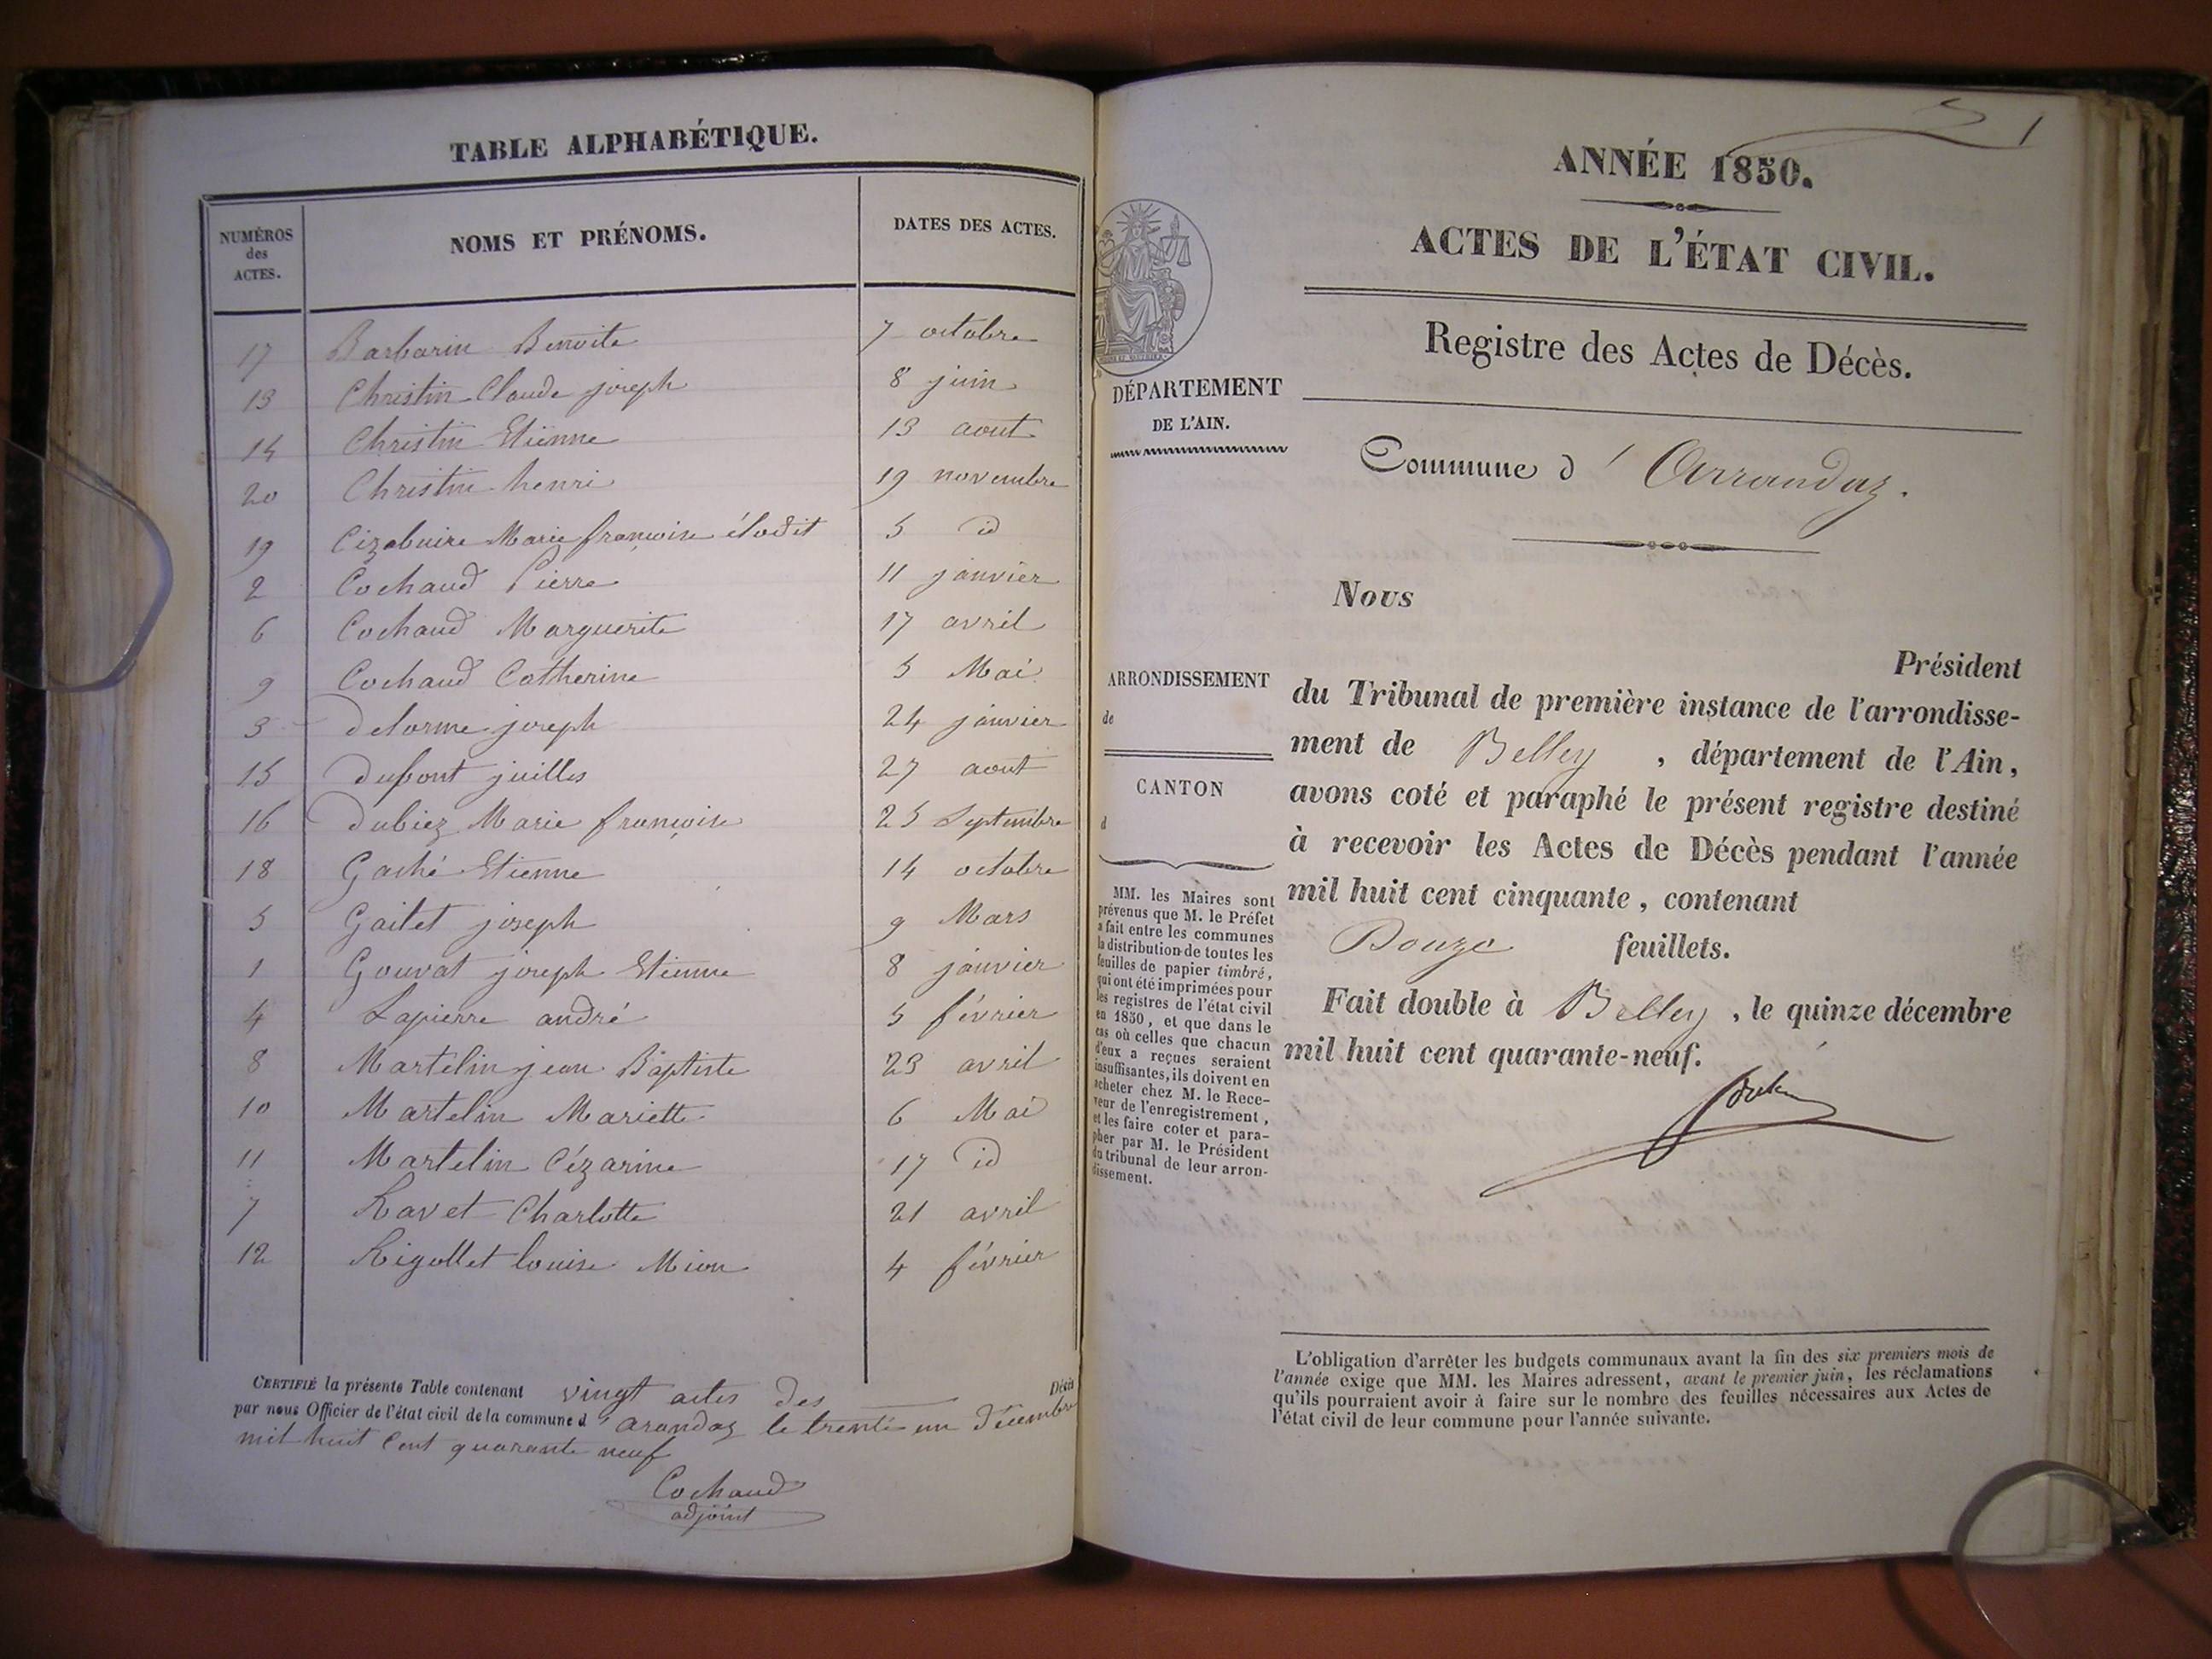 TABLE ALPHABÉTIQUE.
NUMÉROS
des
ACTES.
NOMS ET PRÉNOMS.
DATES DES ACTES.
17 Barbarin Benoite 7 octobre
13 Christin Claude joseph 8 juin
14 Christin Etienne 13 aout
20 Christin henri 19 novembre
19 Cizabuire Marie françoise élodit 5 id
2 Cochaud Pierre 11 janvier
6 Cochaud Marguerite 17 avril
9 Cochaud Catherine 5 Mai
3 delorme joseph 24 janvier
15 dupont juilles 27 aout
16 dubiez Marie françoise 25 Septembre
18 Gaché Etienne 14 octobre
5 Gaitet joseph 9 Mars
1 Gouvat joseph Etienne 8 janvier
4 Lapierre andré 5 février
8 Martelin jean Baptiste 23 avril
10 Martelin Mariette 6 Mai
11 Martelin Cézarine 17 id
7 Ravet Charlotte 21 avril
12 Rigollet louise Mion 4 février
CERTIFIÉ la présente Table contenant vingt actes des Décès
par nous Officier de l'état civil de la commune d'arandas le trente un décembre
mil huit cent quarante neuf
Cochaud
adjoint
1
ANNÉE 1850.
ACTES DE L'ÉTAT CIVIL.
Registre des Actes de Décès.
DÉPARTEMENT
DE L'AIN.
Commune d'Arrandaz.
Nous
Président
ARRONDISSEMENT
de
CANTON
d
du Tribunal de première instance de l'arrondisse-
ment de Belley, département de l'Ain,
avons coté et paraphé le présent registre destiné
à recevoir les Actes de Décès pendant l'année
mil huit cent cinquante, contenant
Douze feuillets.
Fait double à Belley, le quinze décembre
mil huit cent quarante-neuf.
MM. les Maires sont
prévenus que M. le Préfet
a fait entre les communes
la distribution de toutes les
feuilles de papier timbré,
qui ont été imprimées pour
les registres de l'état civil
en 1850, et que dans le
cas où celles que chacun
d'eux a reçues seraient
insuffisantes, ils doivent en
acheter chez M. le Rece-
veur de l'enregistrement,
et les faire coter et para-
pher par M. le Président
du tribunal de leur arron-
dissement.
L'obligation d'arrêter les budgets communaux avant la fin des six premiers mois de
l'année exige que MM. les Maires adressent, avant le premier juin, les réclamations
qu'ils pourraient avoir à faire sur le nombre des feuilles nécessaires aux Actes de
l'état civil de leur commune pour l'année suivante.